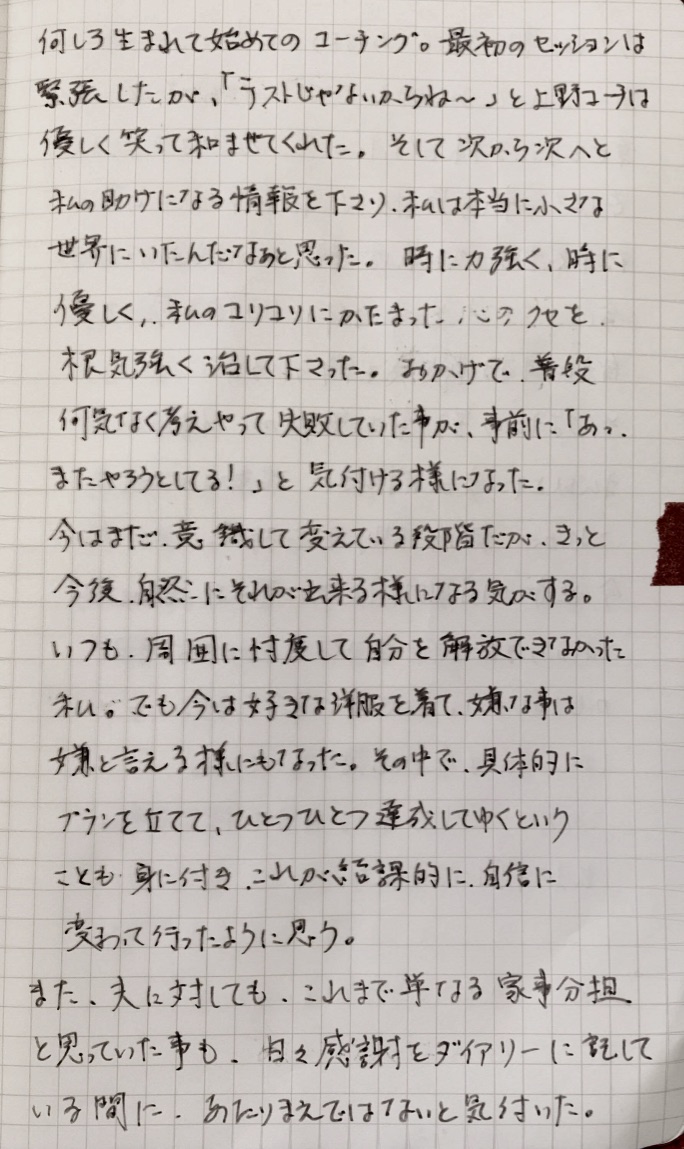 何しろ生まれて始めてのコーチング。最初のセッションは
緊張したが、「テストじゃないからね〜」と上野コーチは
優しく笑って和ませてくれた。そして次から次へと
私の助けになる情報を下さり、私は本当に小さな
世界にいたんだなあと思った。時に力強く、時に
優しく、私のコリコリにかたまった心のクセを、
根気強く治して下さった。おかげで、普段
何気なく考えやって失敗していた事が、事前に「あっ、
またやろうとしてる!」と気付ける様になった。
今はまだ、意識して変えている段階だが、きっと
今後、自然にそれが出来る様になる気がする。
いつも、周囲に忖度して自分を解放できなかった
私。でも今は好きな洋服を着て、嫌な事は
嫌と言える様にもなった。その中で、具体的に
プランを立てて、ひとつひとつ達成してゆくという
ことも身に付き、これが結課的に、自信に
変わって行ったように思う。
また、夫に対しても、これまで単なる家事分担
と思っていた事も、日々感謝をダイアリーに記して
いる間に、あたりまえではないと気付いた。